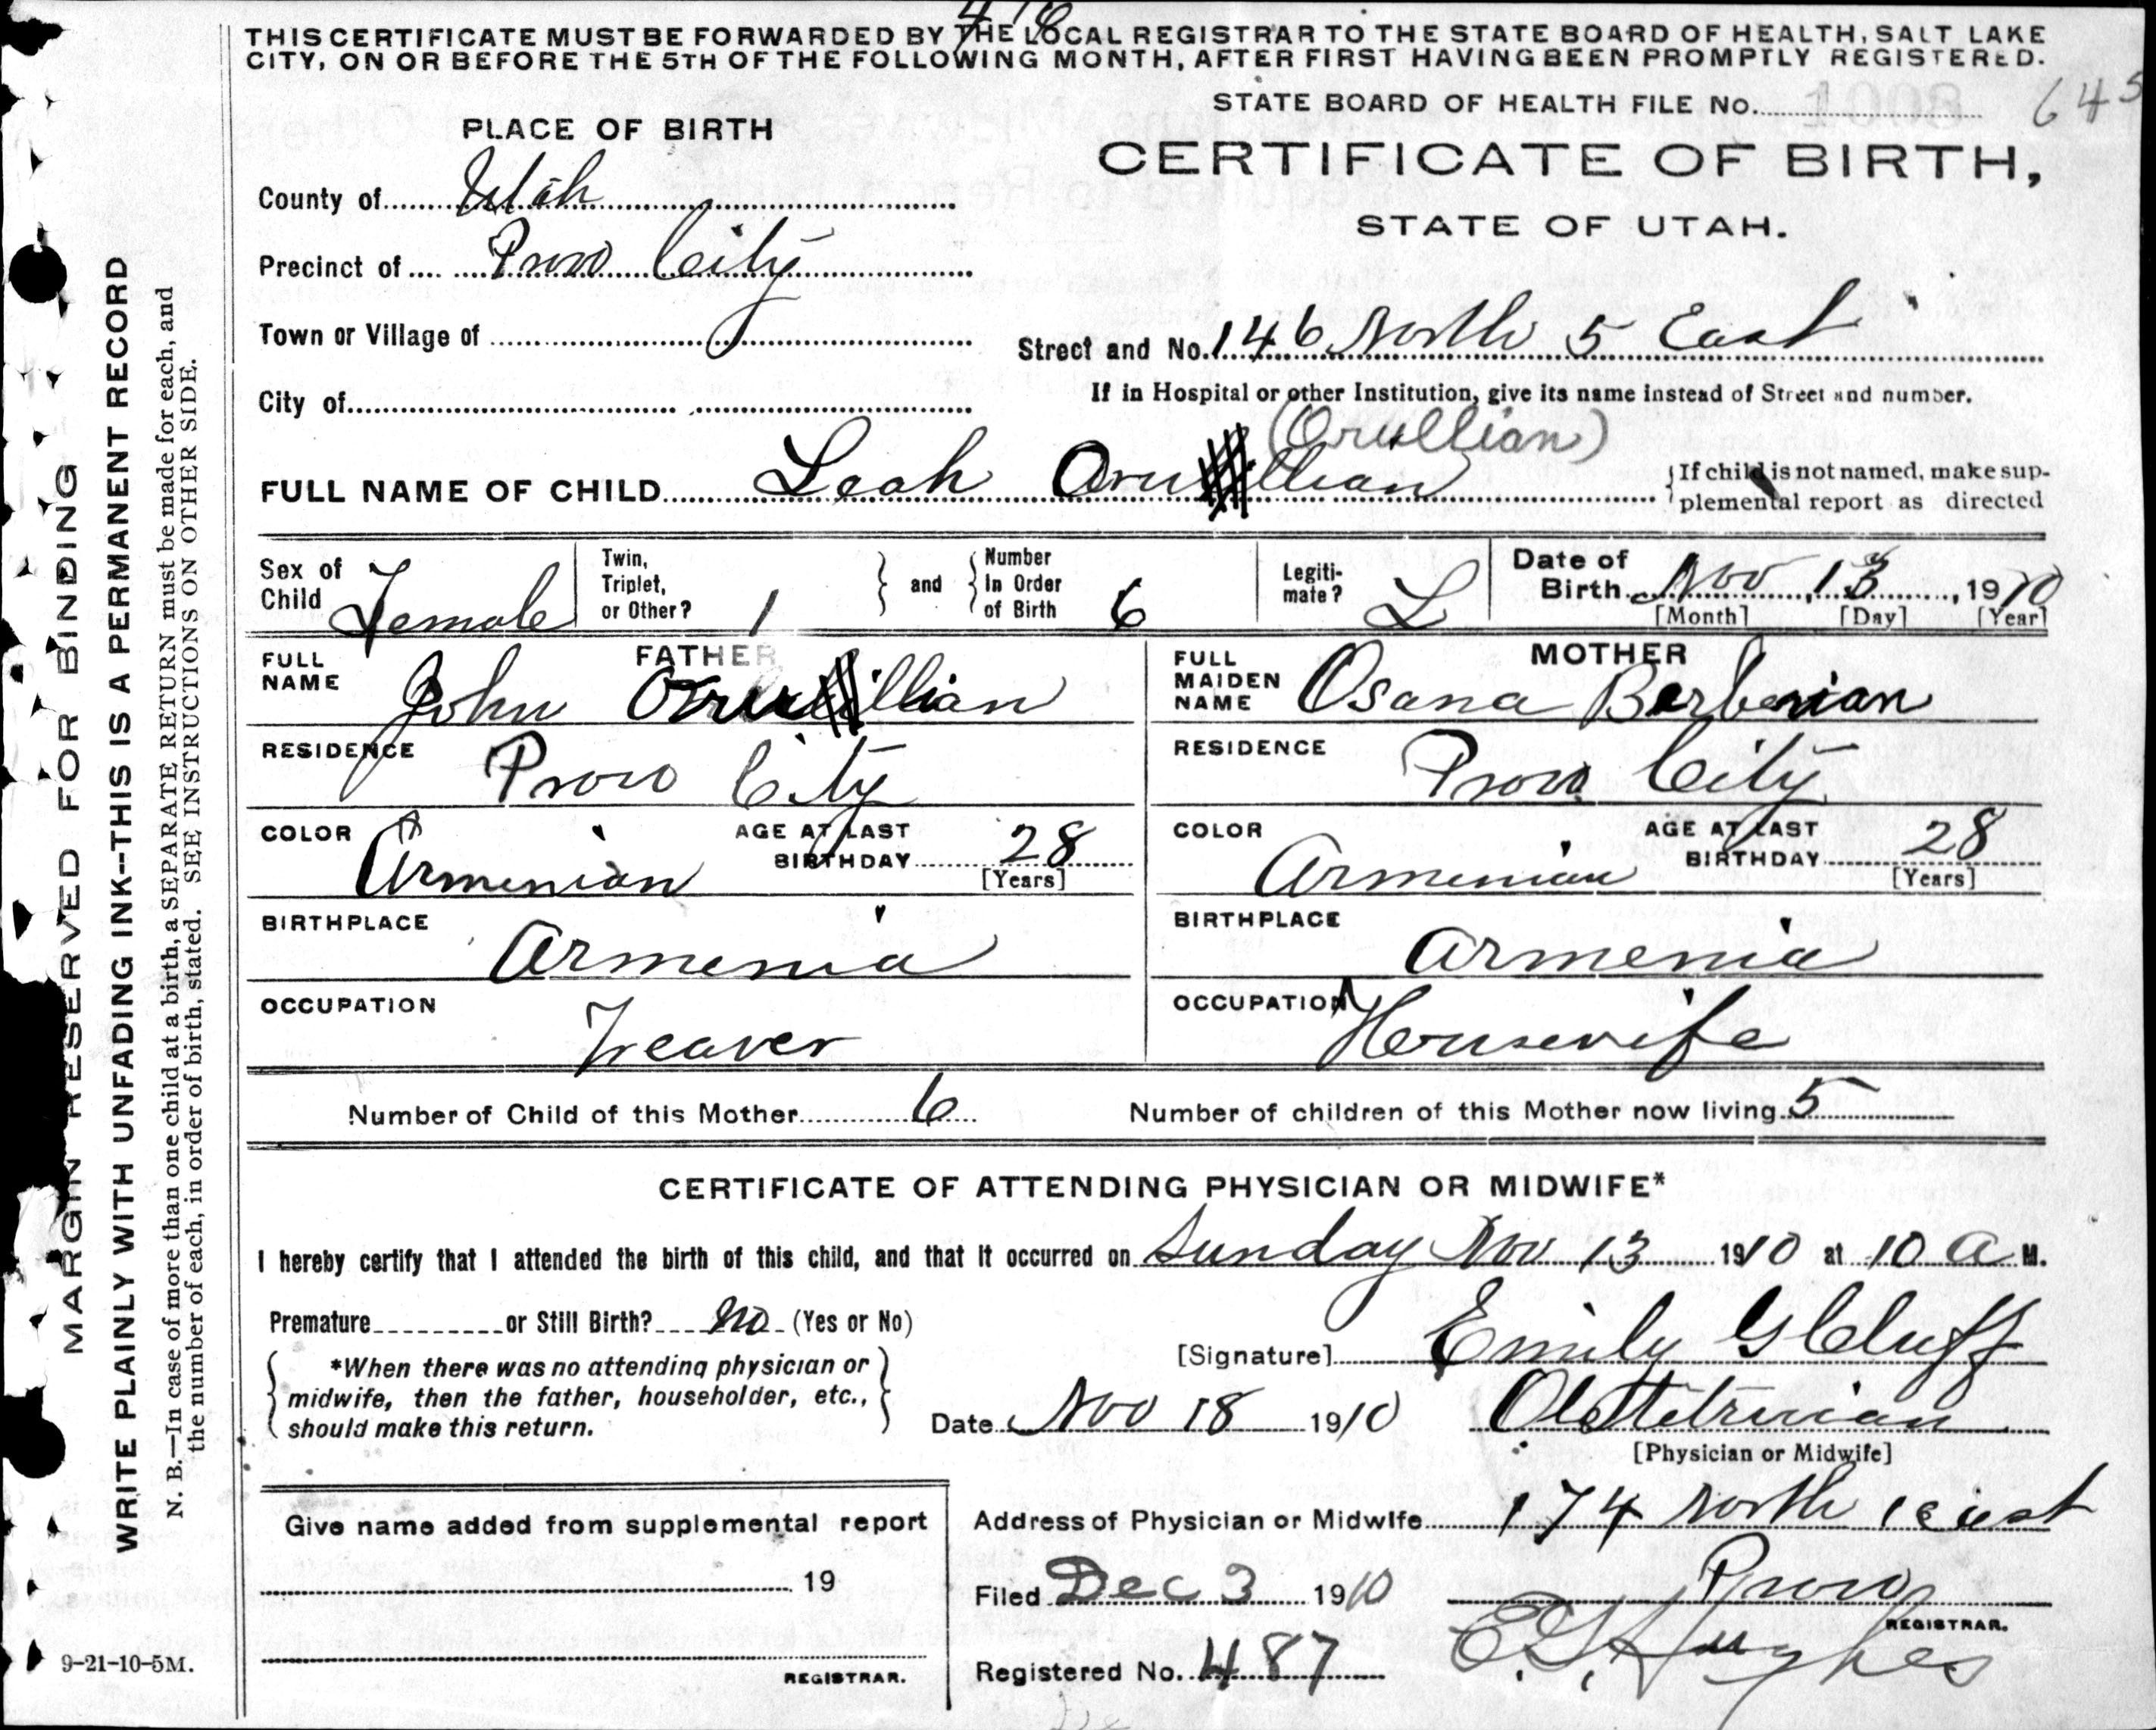 THIS CERTIFICATE MUST BE FORWARDED BY THE LOCAL REGISTRAR TO THE STATE BOARD OF HEALTH, SALT LAKE
CITY, ON OR BEFORE THE 5TH OF THE FOLLOWING MONTH, AFTER FIRST HAVING BEEN PROMPTLY REGISTERED.
STATE BOARD OF HEALTH FILE No. 1008
645
PLACE OF BIRTH
CERTIFICATE OF BIRTH,
STATE OF UTAH.
County of Utah
Precinct of Provo City
Town or Village of
Street and No. 146 North 5 East
City of
If in Hospital or other Institution, give its name instead of Street and number.
(Orullian)
FULL NAME OF CHILD Leah Orullian
If child is not named, make sup-
plemental report as directed
Sex of Child Female
Twin, Triplet, or Other? 1
and
Number In Order of Birth 6
Legiti-mate? L
Date of Birth Nov 13, 1910
[Month] [Day] [Year]
FATHER
FULL NAME John Orullian
RESIDENCE Provo City
COLOR Armenian
AGE AT LAST BIRTHDAY 28
[Years]
BIRTHPLACE Armenia
OCCUPATION Weaver
MOTHER
FULL MAIDEN NAME Osana Berberian
RESIDENCE Provo City
COLOR Armenian
AGE AT LAST BIRTHDAY 28
[Years]
BIRTHPLACE Armenia
OCCUPATION Housewife
Number of Child of this Mother 6
Number of children of this Mother now living 5
CERTIFICATE OF ATTENDING PHYSICIAN OR MIDWIFE*
I hereby certify that I attended the birth of this child, and that it occurred on Sunday Nov 13 1910 at 10 a M.
Premature or Still Birth? No (Yes or No)
*When there was no attending physician or
midwife, then the father, householder, etc.,
should make this return.
[Signature] Emily G Cluff
Date Nov 18 1910
Obstetrician
[Physician or Midwife]
Give name added from supplemental report
19
REGISTRAR.
Address of Physician or Midwife 174 North 1 East
Provo
Filed Dec 3 1910
REGISTRAR.
E. G. Hughes
Registered No. 487
MARGIN RESERVED FOR BINDING
WRITE PLAINLY WITH UNFADING INK--THIS IS A PERMANENT RECORD
N. B.—In case of more than one child at a birth, a SEPARATE RETURN must be made for each, and
the number of each, in order of birth, stated. SEE INSTRUCTIONS ON OTHER SIDE.
9-21-10-5M.